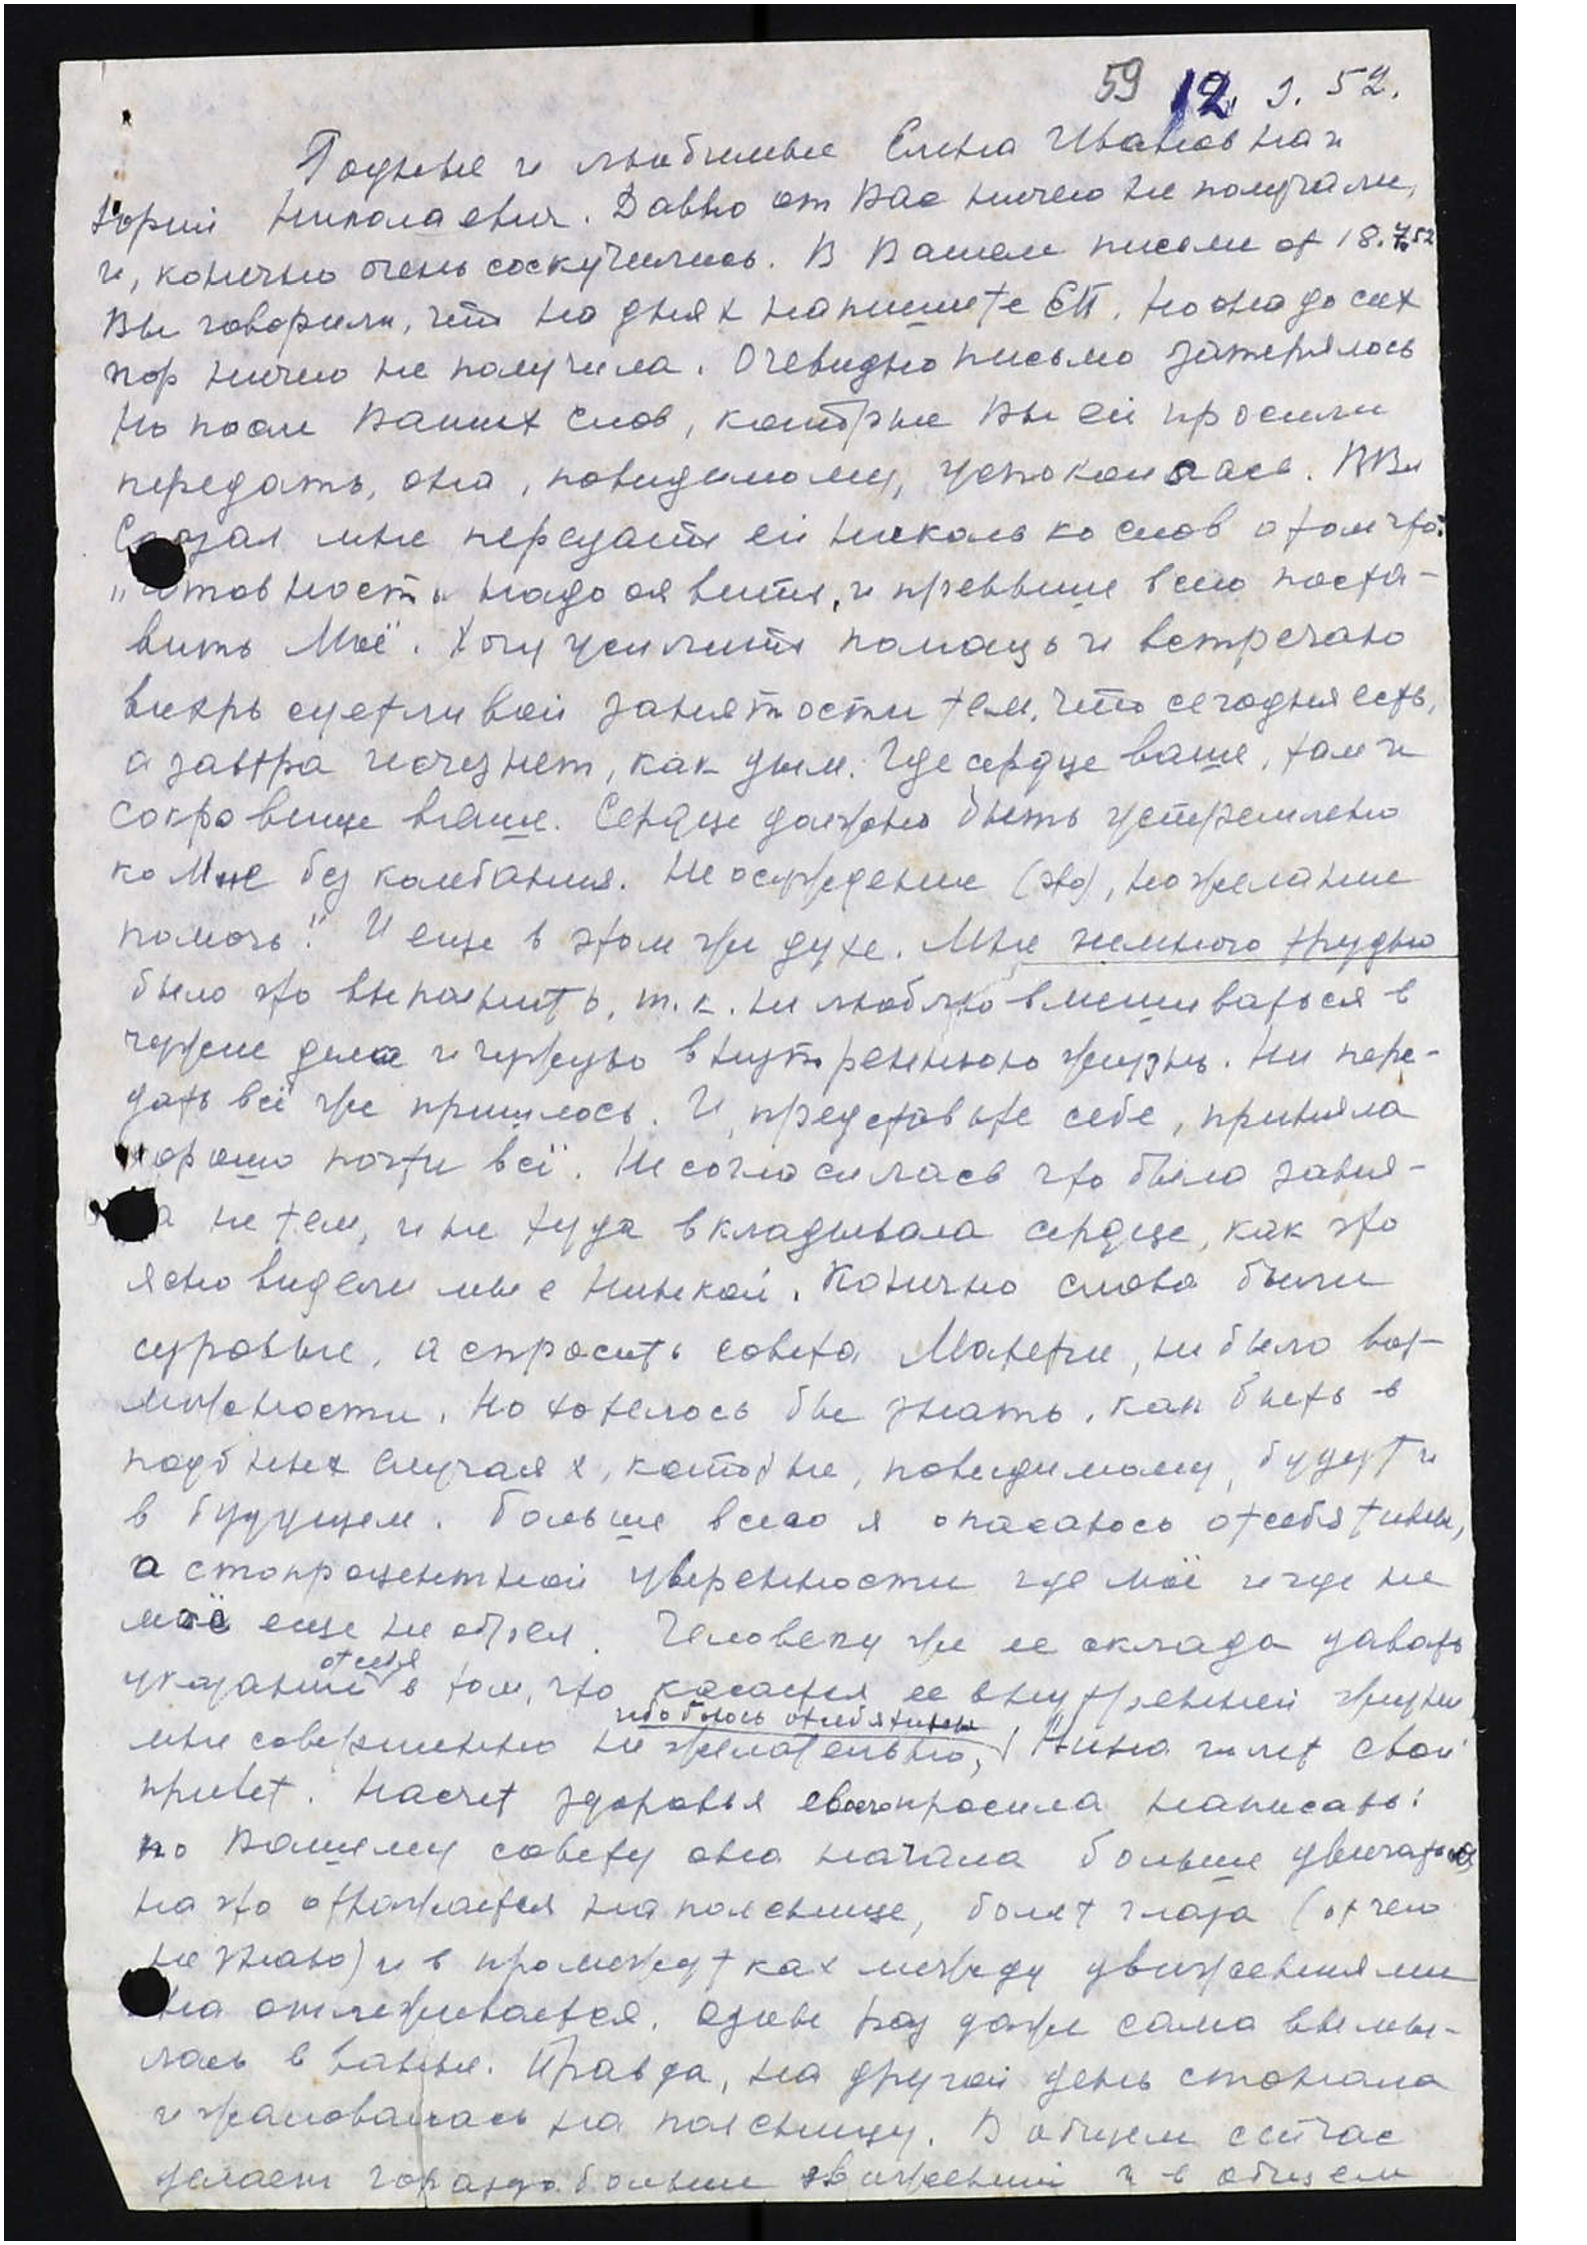 59 12. 9. 52.
Родные и любимые Елена Ивановна и
Юрий Николаевич. Давно от Вас ничего не получали,
и, конечно очень соскучились. В Вашем письме от 18.7.52
Вы говорили, что на днях напишите ЕП. Но она до сих
пор ничего не получила. Очевидно письмо затерялось
Но после Ваших слов, которые Вы ей просили
передать, она, повидимому, успокоилась. ВВл
Сказал мне передать ей несколько слов о том что:
„Готовность надо явить, и превыше всего поста-
вить Моё. Хочу усилить помощь и встречаю
вихрь суетливой занятости тем, что сегодня есть,
а завтра исчезнет, как дым. Где сердце ваше, там и
сокровище ваше. Сердце должно быть устремлено
ко Мне без колебания. Не осуждение (это), но желание
помочь." И еще в этом же духе. Мне немного трудно
было это выполнить, т.к. не люблю вмешиваться в
чужие дела и чужую внутреннюю жизнь. Но пере-
дать всё же пришлось. И, представьте себе, приняла
хорошо почти всё. Не согласилась что была заня-
та не тем, и не туда вкладывала сердце, как это
ясно видели мы с Нинкой. Конечно слова были
суровые, а спросить совета Матери, не было воз-
можности. Но хотелось бы знать, как быть в
подобных случаях, которые, повидимому, будут и
в будущем. Больше всего я опасаюсь отсебятины,
а стопроцентной уверенности где моё и где не
моё еще не обрел. Человеку же ее склада давать
указаний от себя в том, что касается ее внутренней жизни
мне совершенно не желательно, ибо боюсь отсебятины. Нина шлет свой
привет. Насчет здоровья своего просила написать:
по Вашему совету она начала больше двигаться
но это отражается на пояснице, болят глаза (от чего
не знаю) и в промежутках между движениями
она отлеживается. Один раз даже сама вымы-
лась в ванне. Правда, на другой день стонала
и жаловалась на поясницу. В общем сейчас
делает гораздо больше движений и в общем